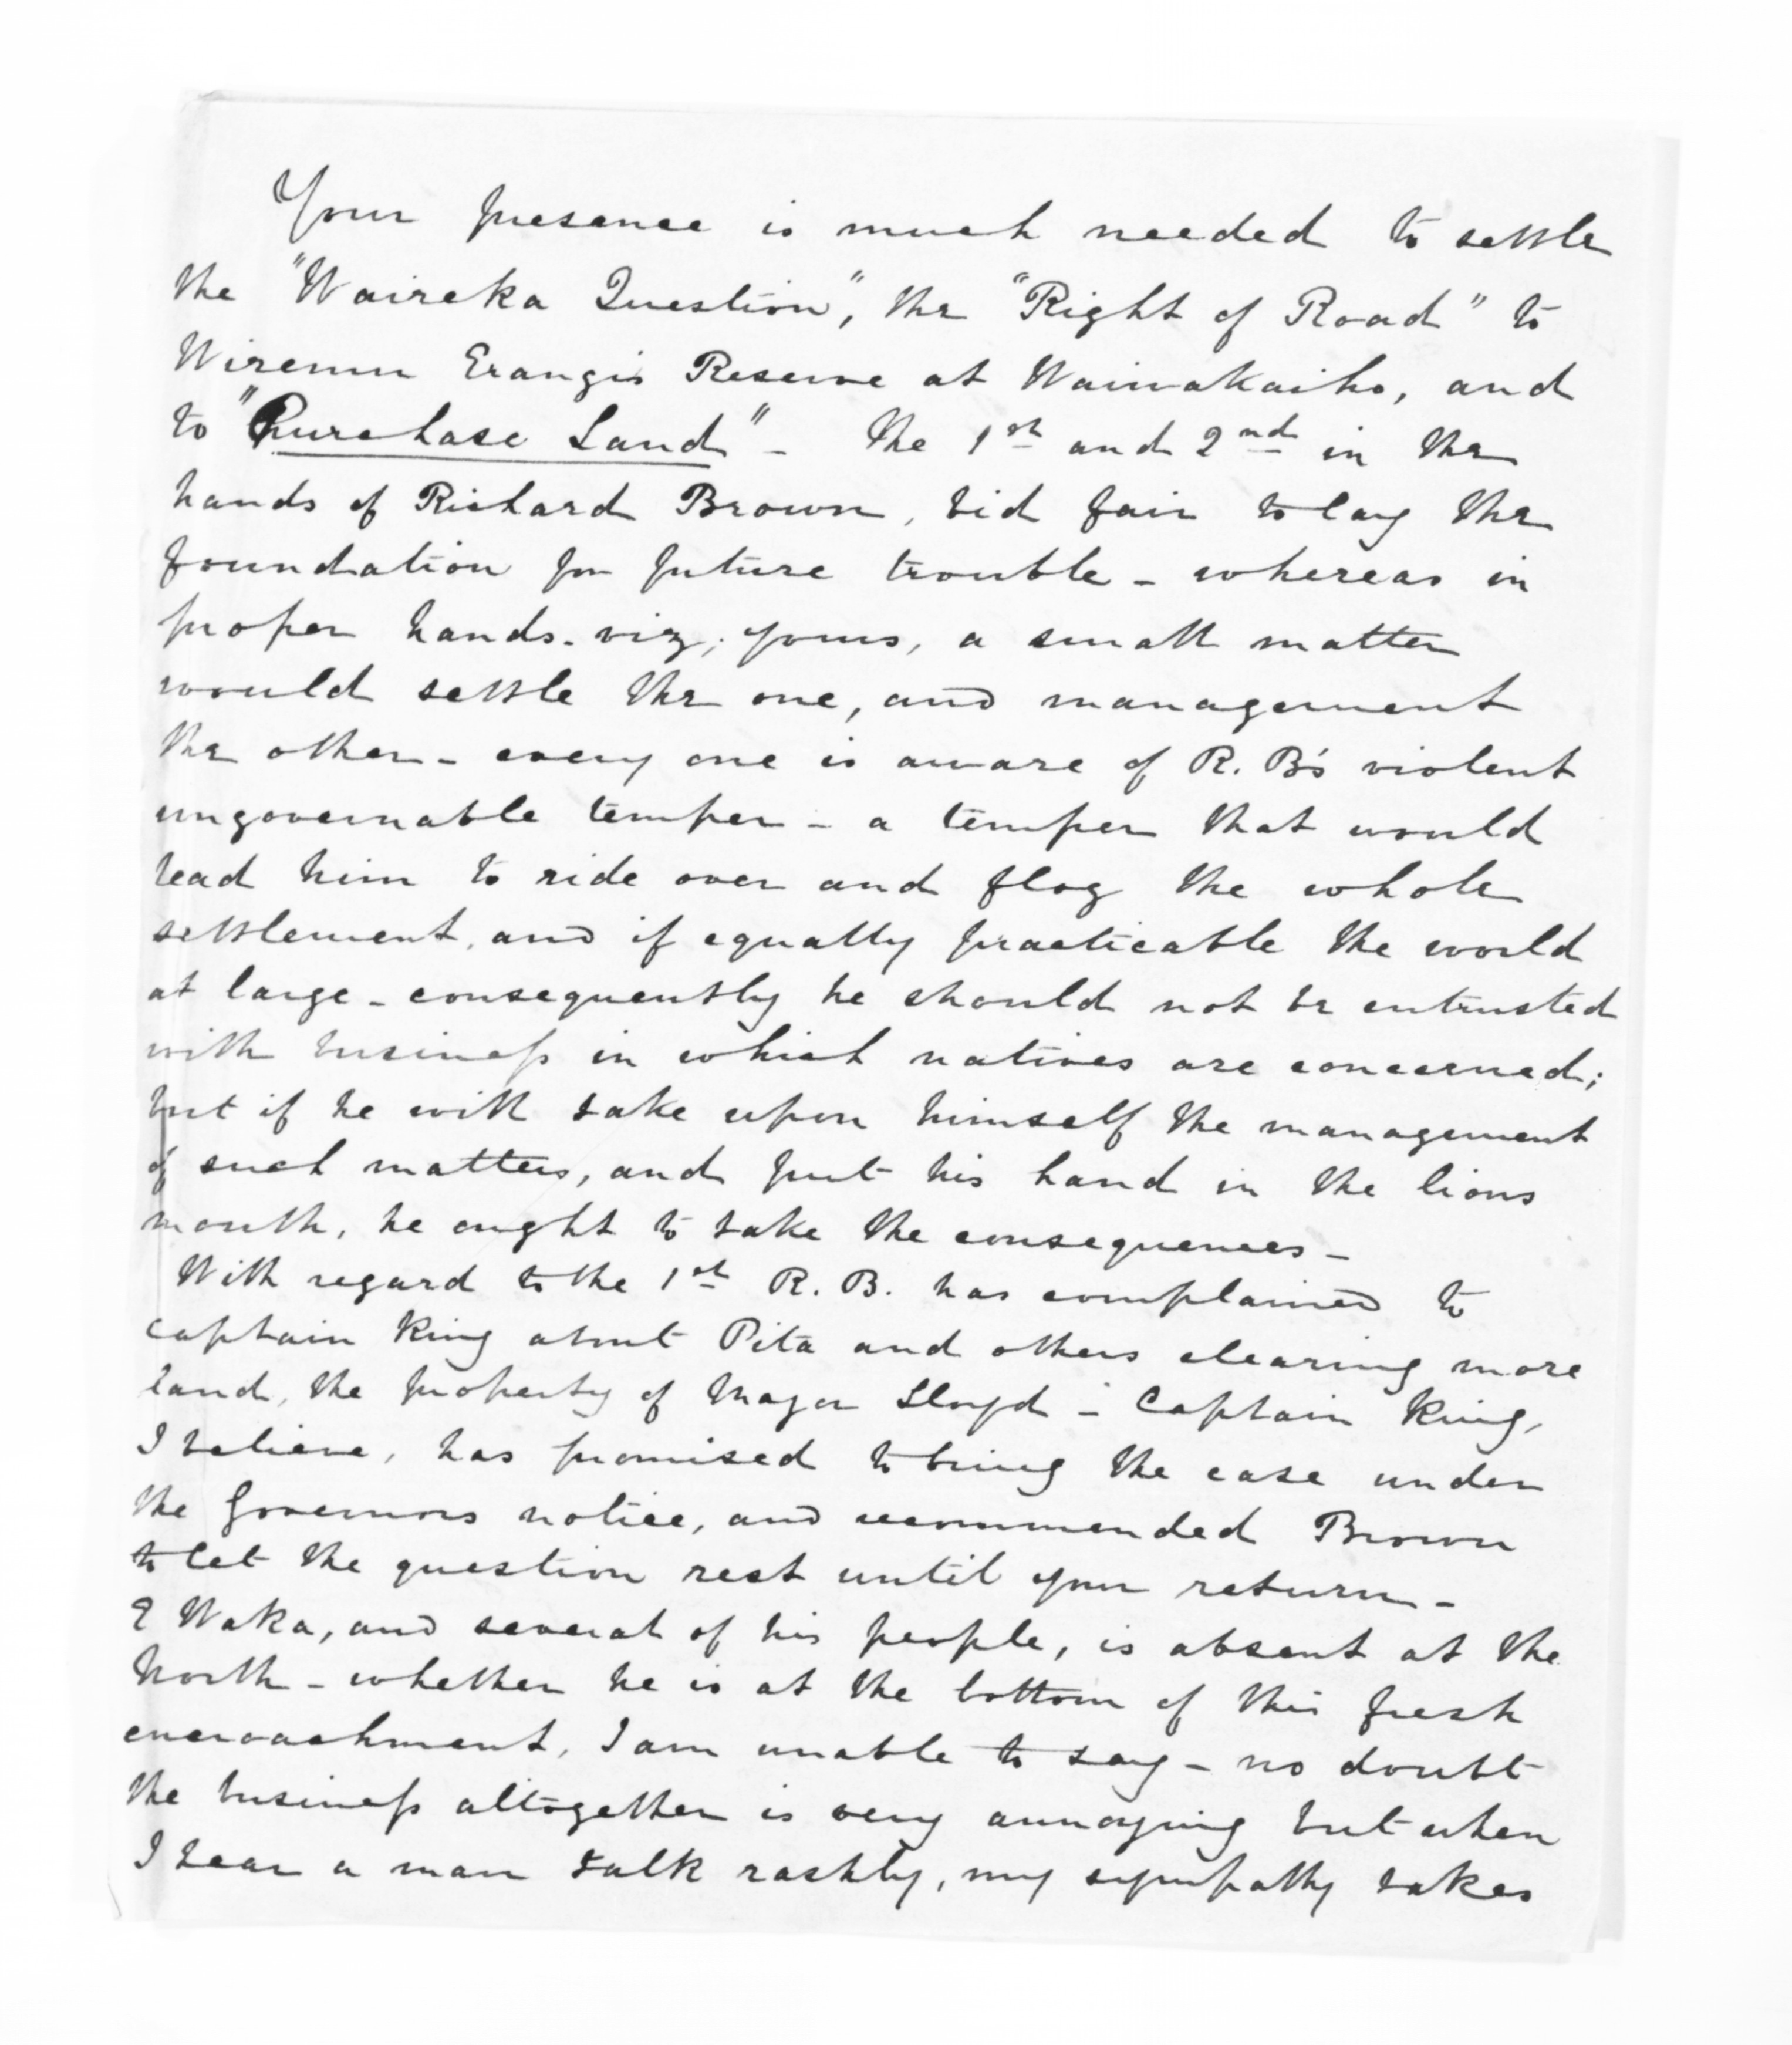 Your presence is much needed to settle
the "Waireka Question", the "Right of Road" to
Wiremu Erangis Reserve at Waiwakaiho, and
to "Purchase Land" - The 1st and 2nd in the
hands of Richard Brown, bid fair to lay the
foundation for future trouble - whereas in
proper hands - viz; yours, a small matter
would settle the one, and management
the other - every one is aware of R. B's violent
ungovernable temper - a temper that would
lead him to ride over and flog the whole
settlement, and if equally practicable the world
at large - consequently he should not be entrusted
with business in which natives are concerned;
but if he will take upon himself the management
of such matters, and put his hand in the lions
mouth, he ought to take the consequences -
With regard to the 1st R. B. has complained to
Captain King about Pita and others clearing more
land, the property of Major Lloyd - Captain King,
I believe, has promised to bring the case under
the Governors notice, and recommended Brown
to let the question rest until your return -
E Waka, and several of his people, is absent at the
North - whether he is at the bottom of this fresh
encroachment, I am unable to say - no doubt
the business altogether is very annoying but when
I hear a man talk rashly, my sympathy takes